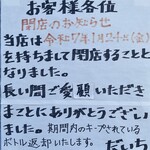 お客様各位
閉店のお知らせ
当店は令和7年1月24日(金)
を持ちまして閉店することと
なりました。
長い間ご愛顧いただき
まことにありがとうござい
ました。期間内のキープされている
ボトル返却いたします。
だいち